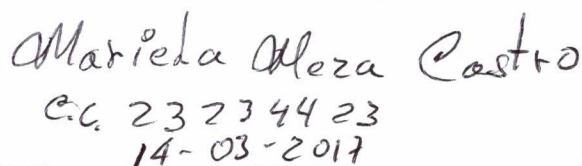 Mariela Meza Castro
C.C. 23234423
14-03-2017